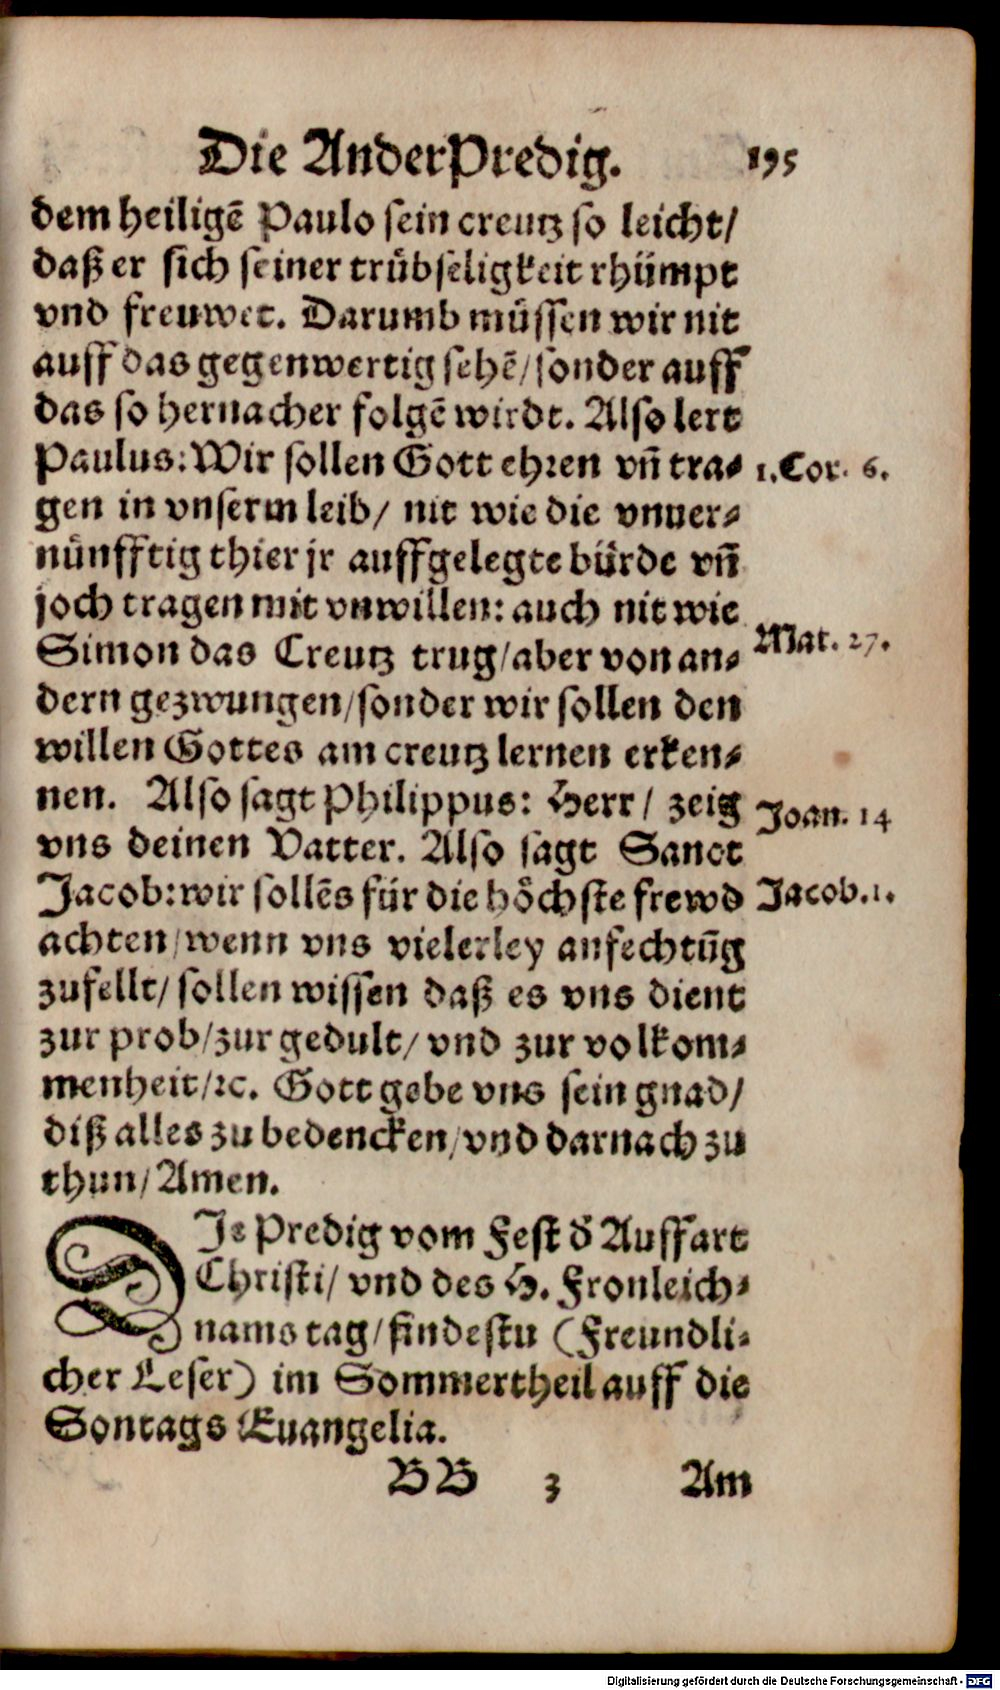 Die Ander Predig. 195
dem heiligẽ Paulo sein creutz so leicht/
daß er sich seiner trübseligkeit rhümpt
vnd freuwet. Darumb müssen wir nit
auff das gegenwertig sehẽ/sonder auff
das so hernacher folgẽ wirdt. Also lert
Paulus: Wir sollen Gott ehren vñ tra⸗ 1. Cor. 6.
gen in vnserm leib/ nit wie die vnuer⸗
nünfftig thier jr auffgelegte bürde vñ
joch tragen mit vnwillen: auch nit wie
Simon das Creutz trug/aber von an⸗ Mat. 27.
dern gezwungen/sonder wir sollen den
willen Gottes am creutz lernen erken⸗
nen. Also sagt Philippus: Herr/ zeig Joan. 14
vns deinen Vatter. Also sagt Sanct
Jacob: wir sollẽs für die höchste frewd Jacob. 1.
achten/wenn vns vielerley anfechtũg
zufellt/ sollen wissen daß es vns dient
zur prob/zur gedult/ vnd zur volkom⸗
menheit/ꝛc. Gott gebe vns sein gnad/
diß alles zu bedencken/vnd darnach zu
thun/Amen.
DJe Predig vom Fest d̃ Auffart
Christi/ vnd des H. Fronleich⸗
nams tag/findestu (Freundli⸗
cher Leser) im Sommertheil auff die
Sontags Euangelia.
BB 3 Am
Digitalisierung gefördert durch die Deutsche Forschungsgemeinschaft - DFG